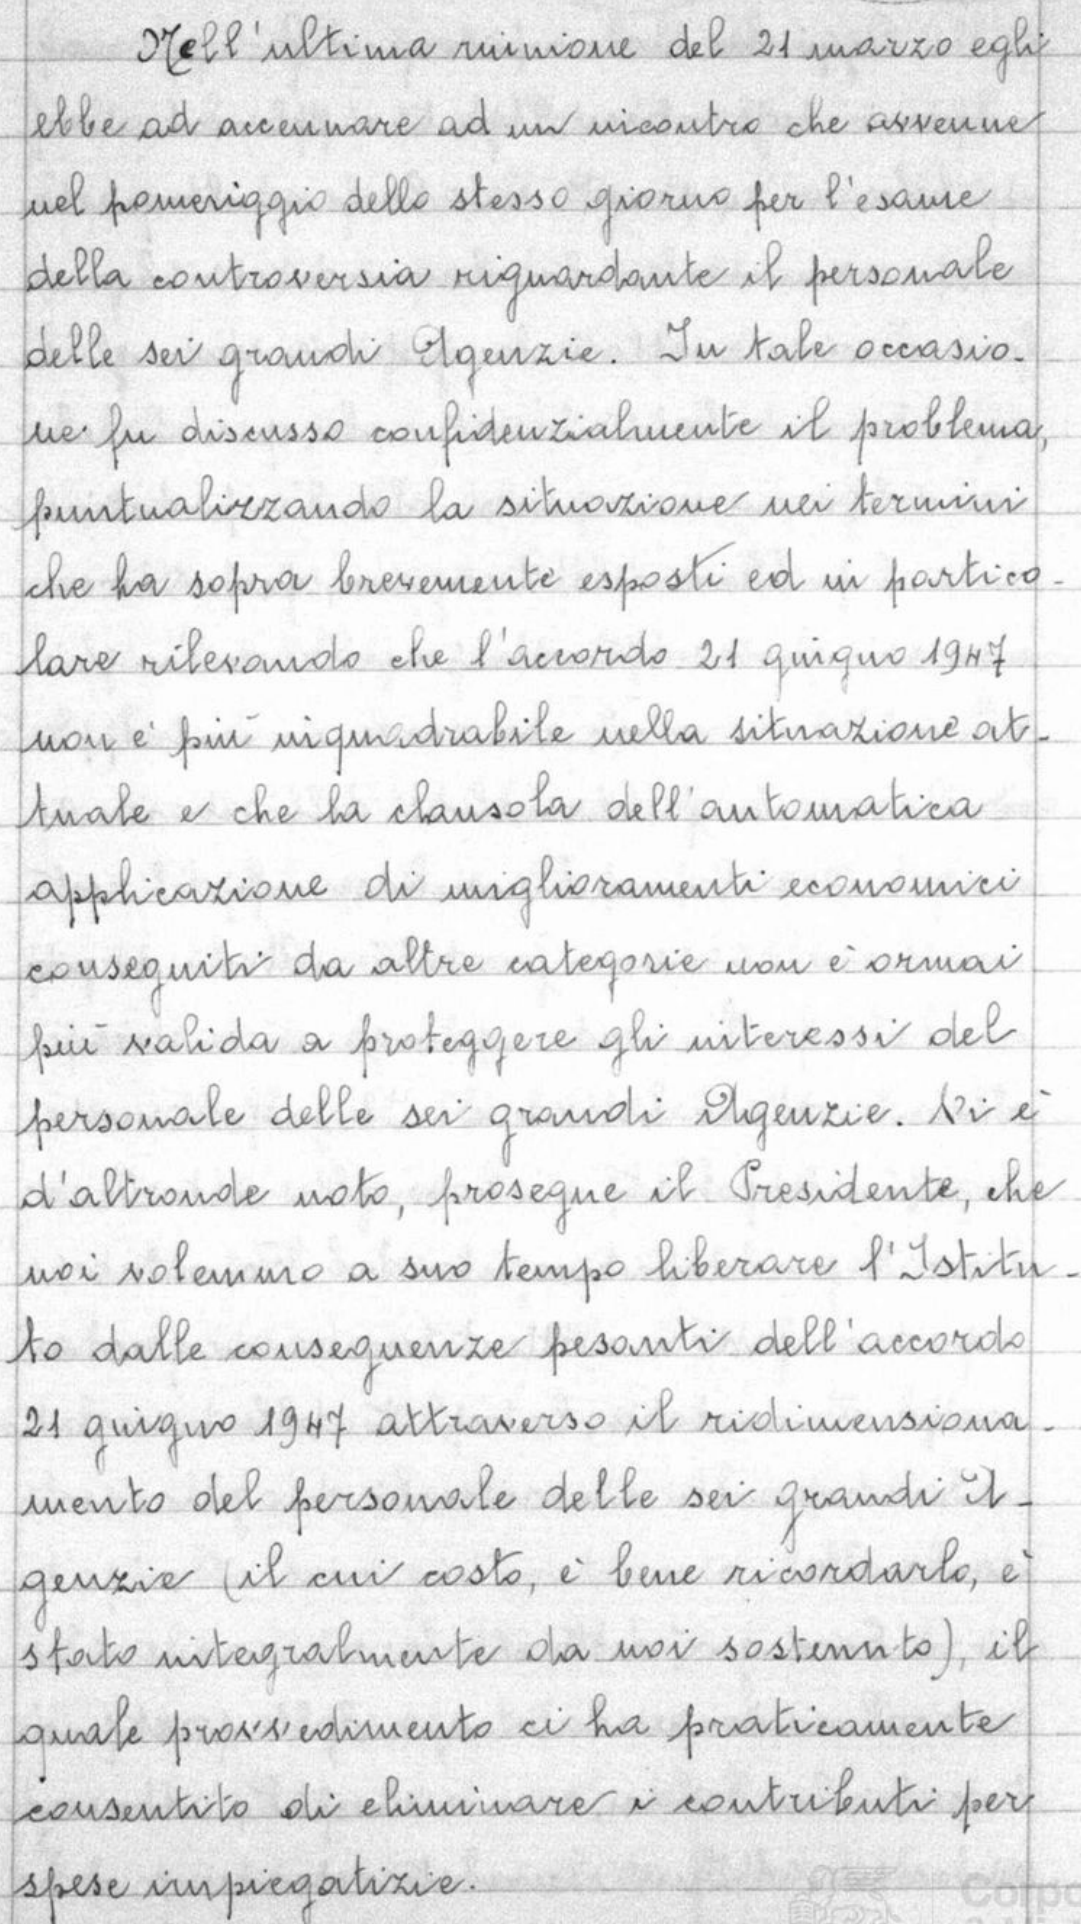 Nell'ultima riunione del 21 marzo egli
ebbe ad accennare ad un incontro che avvenne
nel pomeriggio dello stesso giorno per l'esame
della controversia riguardante il personale
delle sei grandi Agenzie. In tale occasio-
ne fu discusso confidenzialmente il problema,
puntualizzando la situazione nei termini
che ha sopra brevemente esposti ed in partico-
lare rilevando che l'accordo 21 giugno 1947
non è più inquadrabile nella situazione at-
tuale e che la clausola dell'automatica
applicazione di miglioramenti economici
conseguiti da altre categorie non è ormai
più valida a proteggere gli interessi del
personale delle sei grandi Agenzie. Vi è
d'altronde noto, prosegue il Presidente, che
noi volemmo a suo tempo liberare l'Istitu-
to dalle conseguenze pesanti dell'accordo
21 giugno 1947 attraverso il ridimensiona-
mento del personale delle sei grandi A-
genzie (il cui costo, è bene ricordarlo, è
stato integralmente da noi sostenuto), il
quale provvedimento ci ha praticamente
consentito di eliminare i contributi per
spese impiegatizie.